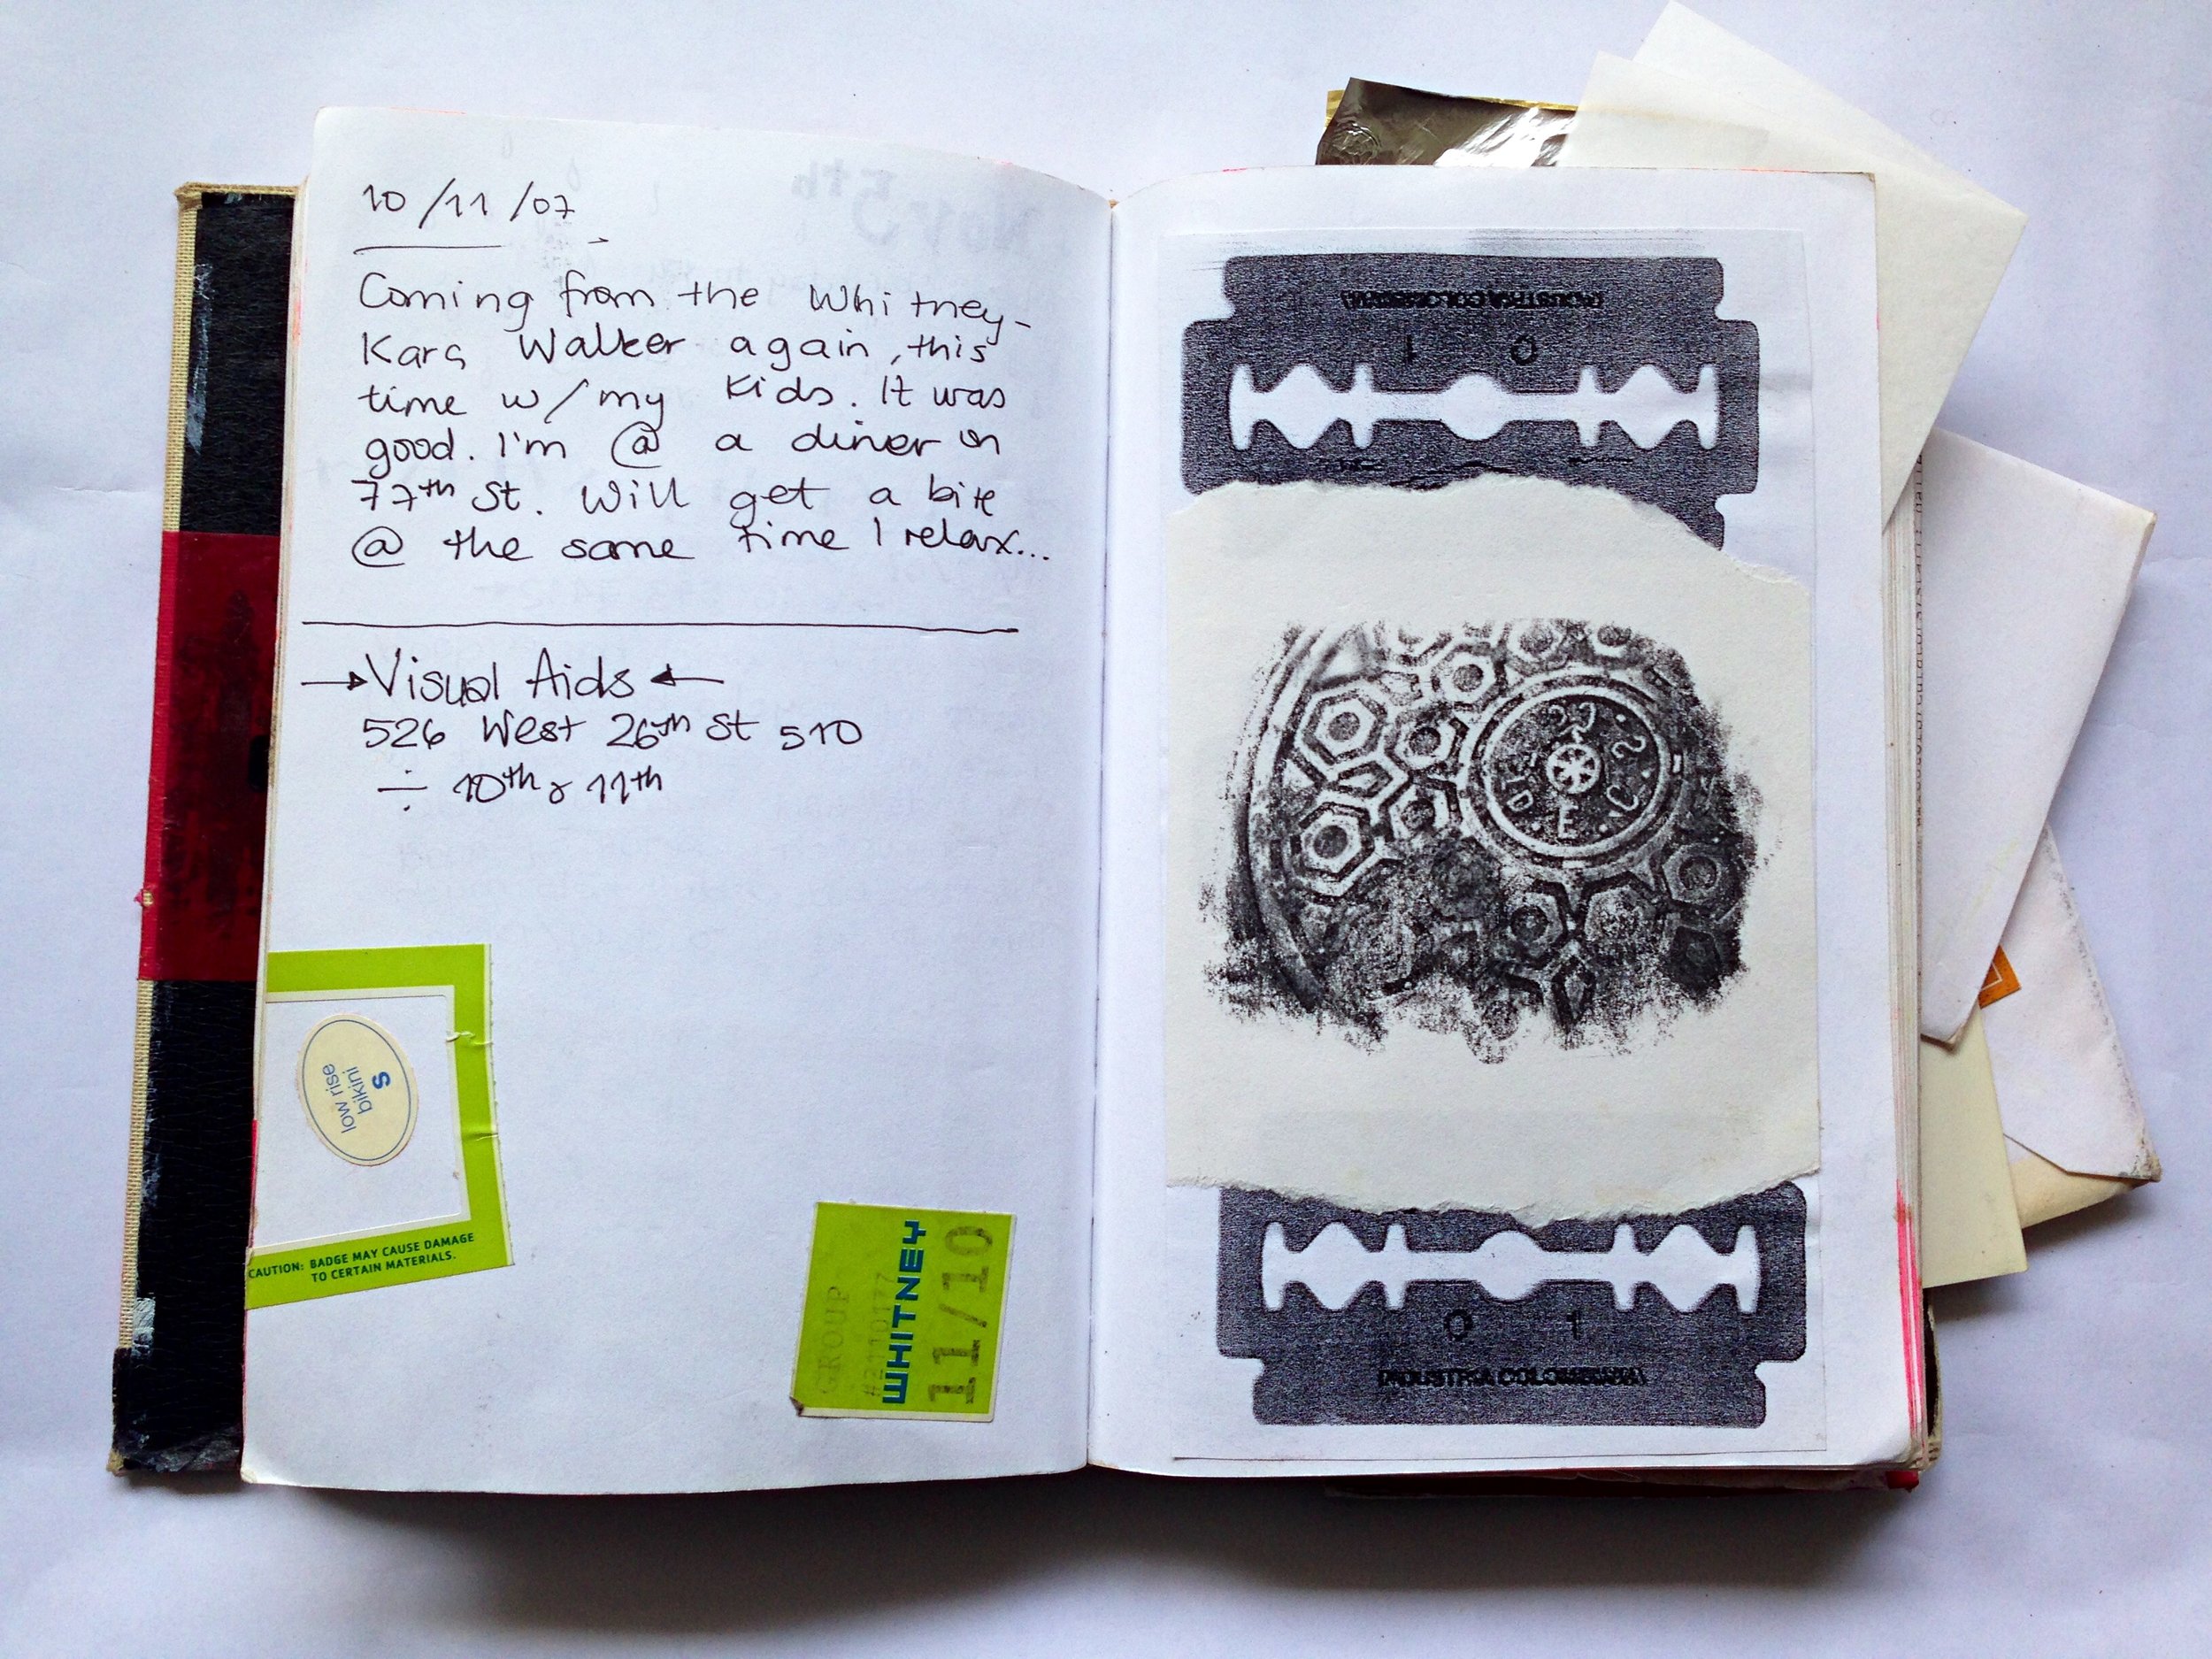 10/11/07
Coming from the Whitney-
Kara Walker again, this
time w/my kids. It was
good. I'm @ a diner on
77th St. Will get a bite
@ the same time I relax...
→Visual Aids←
526 West 26th St 510
÷ 10th & 11th
low rise
bikini
S
CAUTION: BADGE MAY CAUSE DAMAGE
TO CERTAIN MATERIALS.
GROUP
WHITNEY
11/10
INDUSTRIA COLOMBIANA
1 0
D.E.C.
0 1
INDUSTRIA COLOMBIANA
Nov 5th